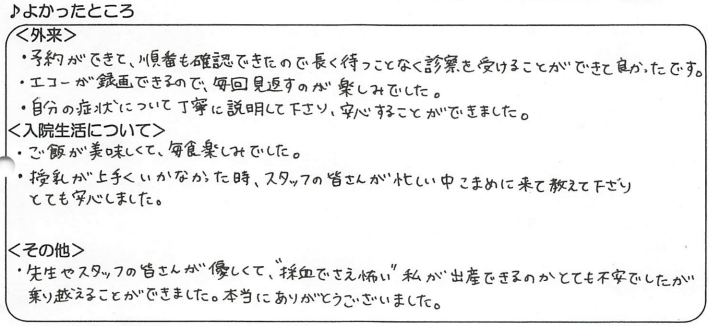 ♪よかったところ
＜外来＞
・予約ができて、順番も確認できたので長く待つことなく診察を受けることができて良かったです。
・エコーが録画できるので、毎回見返すのが楽しみでした。
・自分の症状について丁寧に説明して下さり、安心することができました。
＜入院生活について＞
・ご飯が美味しくて、毎食楽しみでした。
・授乳が上手くいかなかった時、スタッフの皆さんが忙しい中こまめに来て教えて下さり
とても安心しました。
＜その他＞
・先生やスタッフの皆さんが優しくて、"採血でさえ怖い"私が出産できるのかとても不安でしたが
乗り越えることができました。本当にありがとうございました。